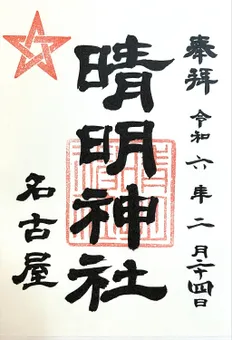 奉拝 令和六年二月二十四日
晴明神社
名古屋